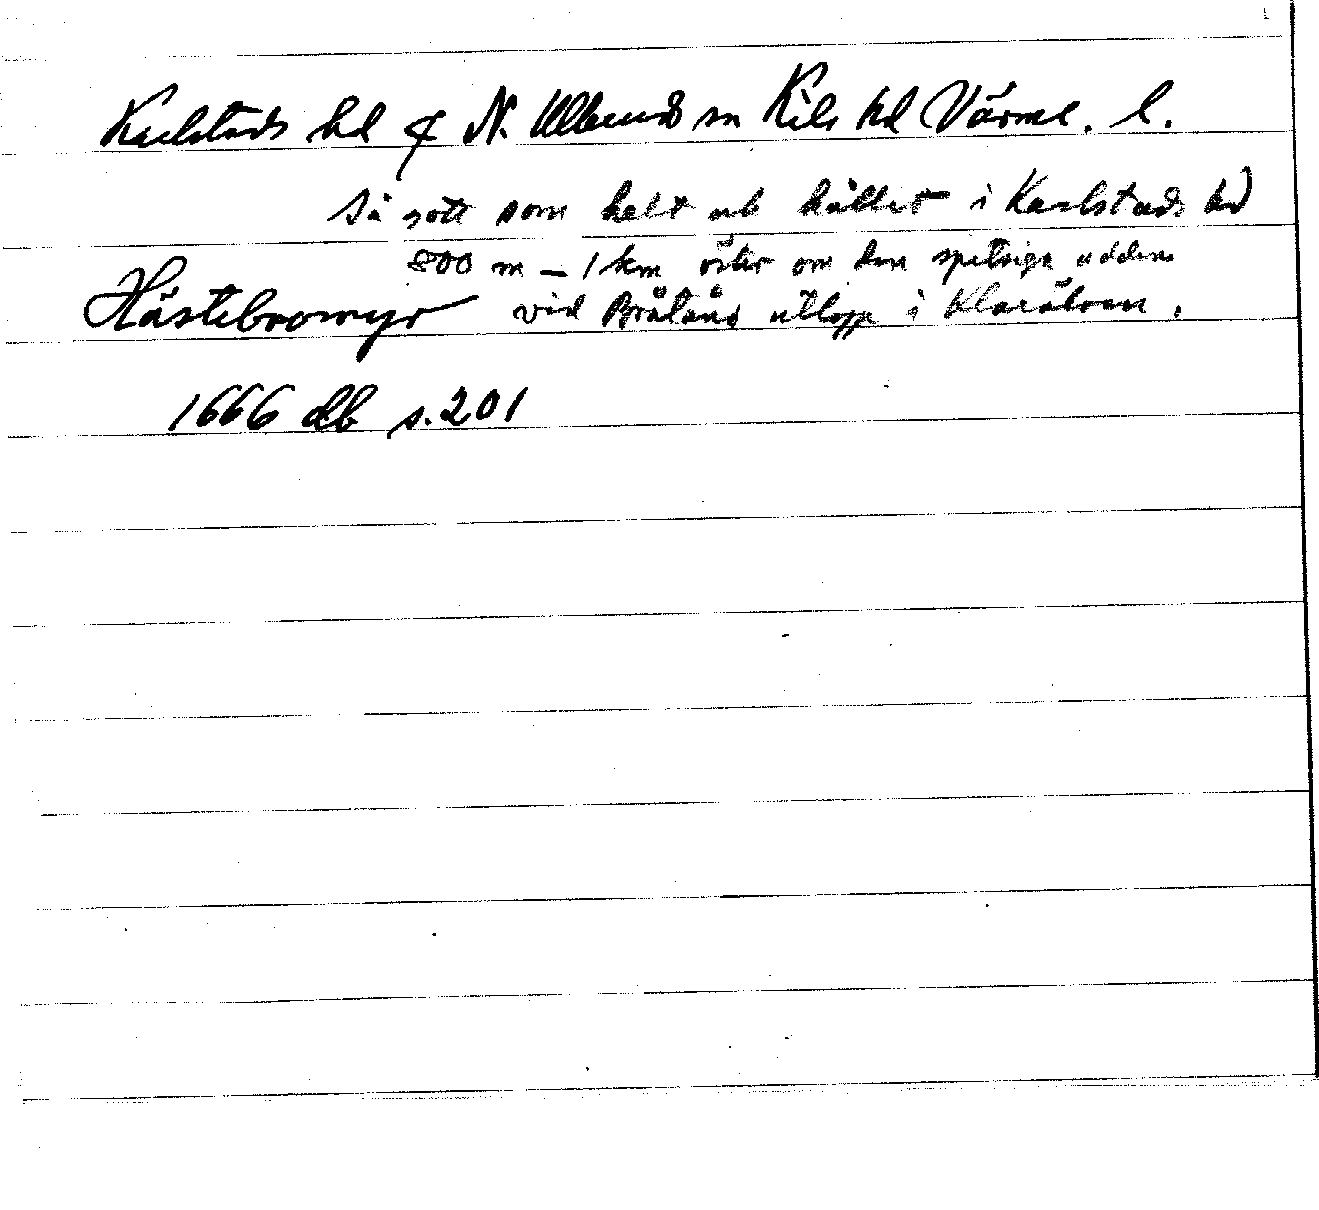 Karlstads hd & N. Ullerud sn Kils hd Värml. l.
Så gott som helt och hållet i Karlstads hd
800 m – 1 km öster om den spetsiga udden
Hästebromyr vid Bråtåns utlopp i Klarälven.
1666 db s. 201